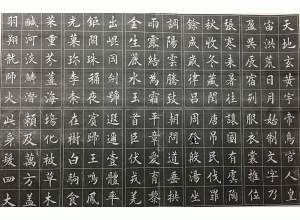 天地玄黃宇帝鳥官人皇
宙洪荒日月始制文字乃
盈昃辰宿列服衣裳推位
張寒來暑往讓國有虞陶
秋收冬藏閏唐弔民伐罪
餘成歲律呂周發殷湯坐
調陽雲騰致朝問道垂拱
雨露結為霜平章愛育黎
金生麗水玉首臣伏戎羌
出崐岡劍號遐邇壹體率
鉅闕珠稱夜賓歸王鳴鳳
光菓珍李柰在樹白駒食
菜重芥薑海場化被草木
鹹河淡鱗潛賴及萬方蓋
羽翔龍師火此身髮四大